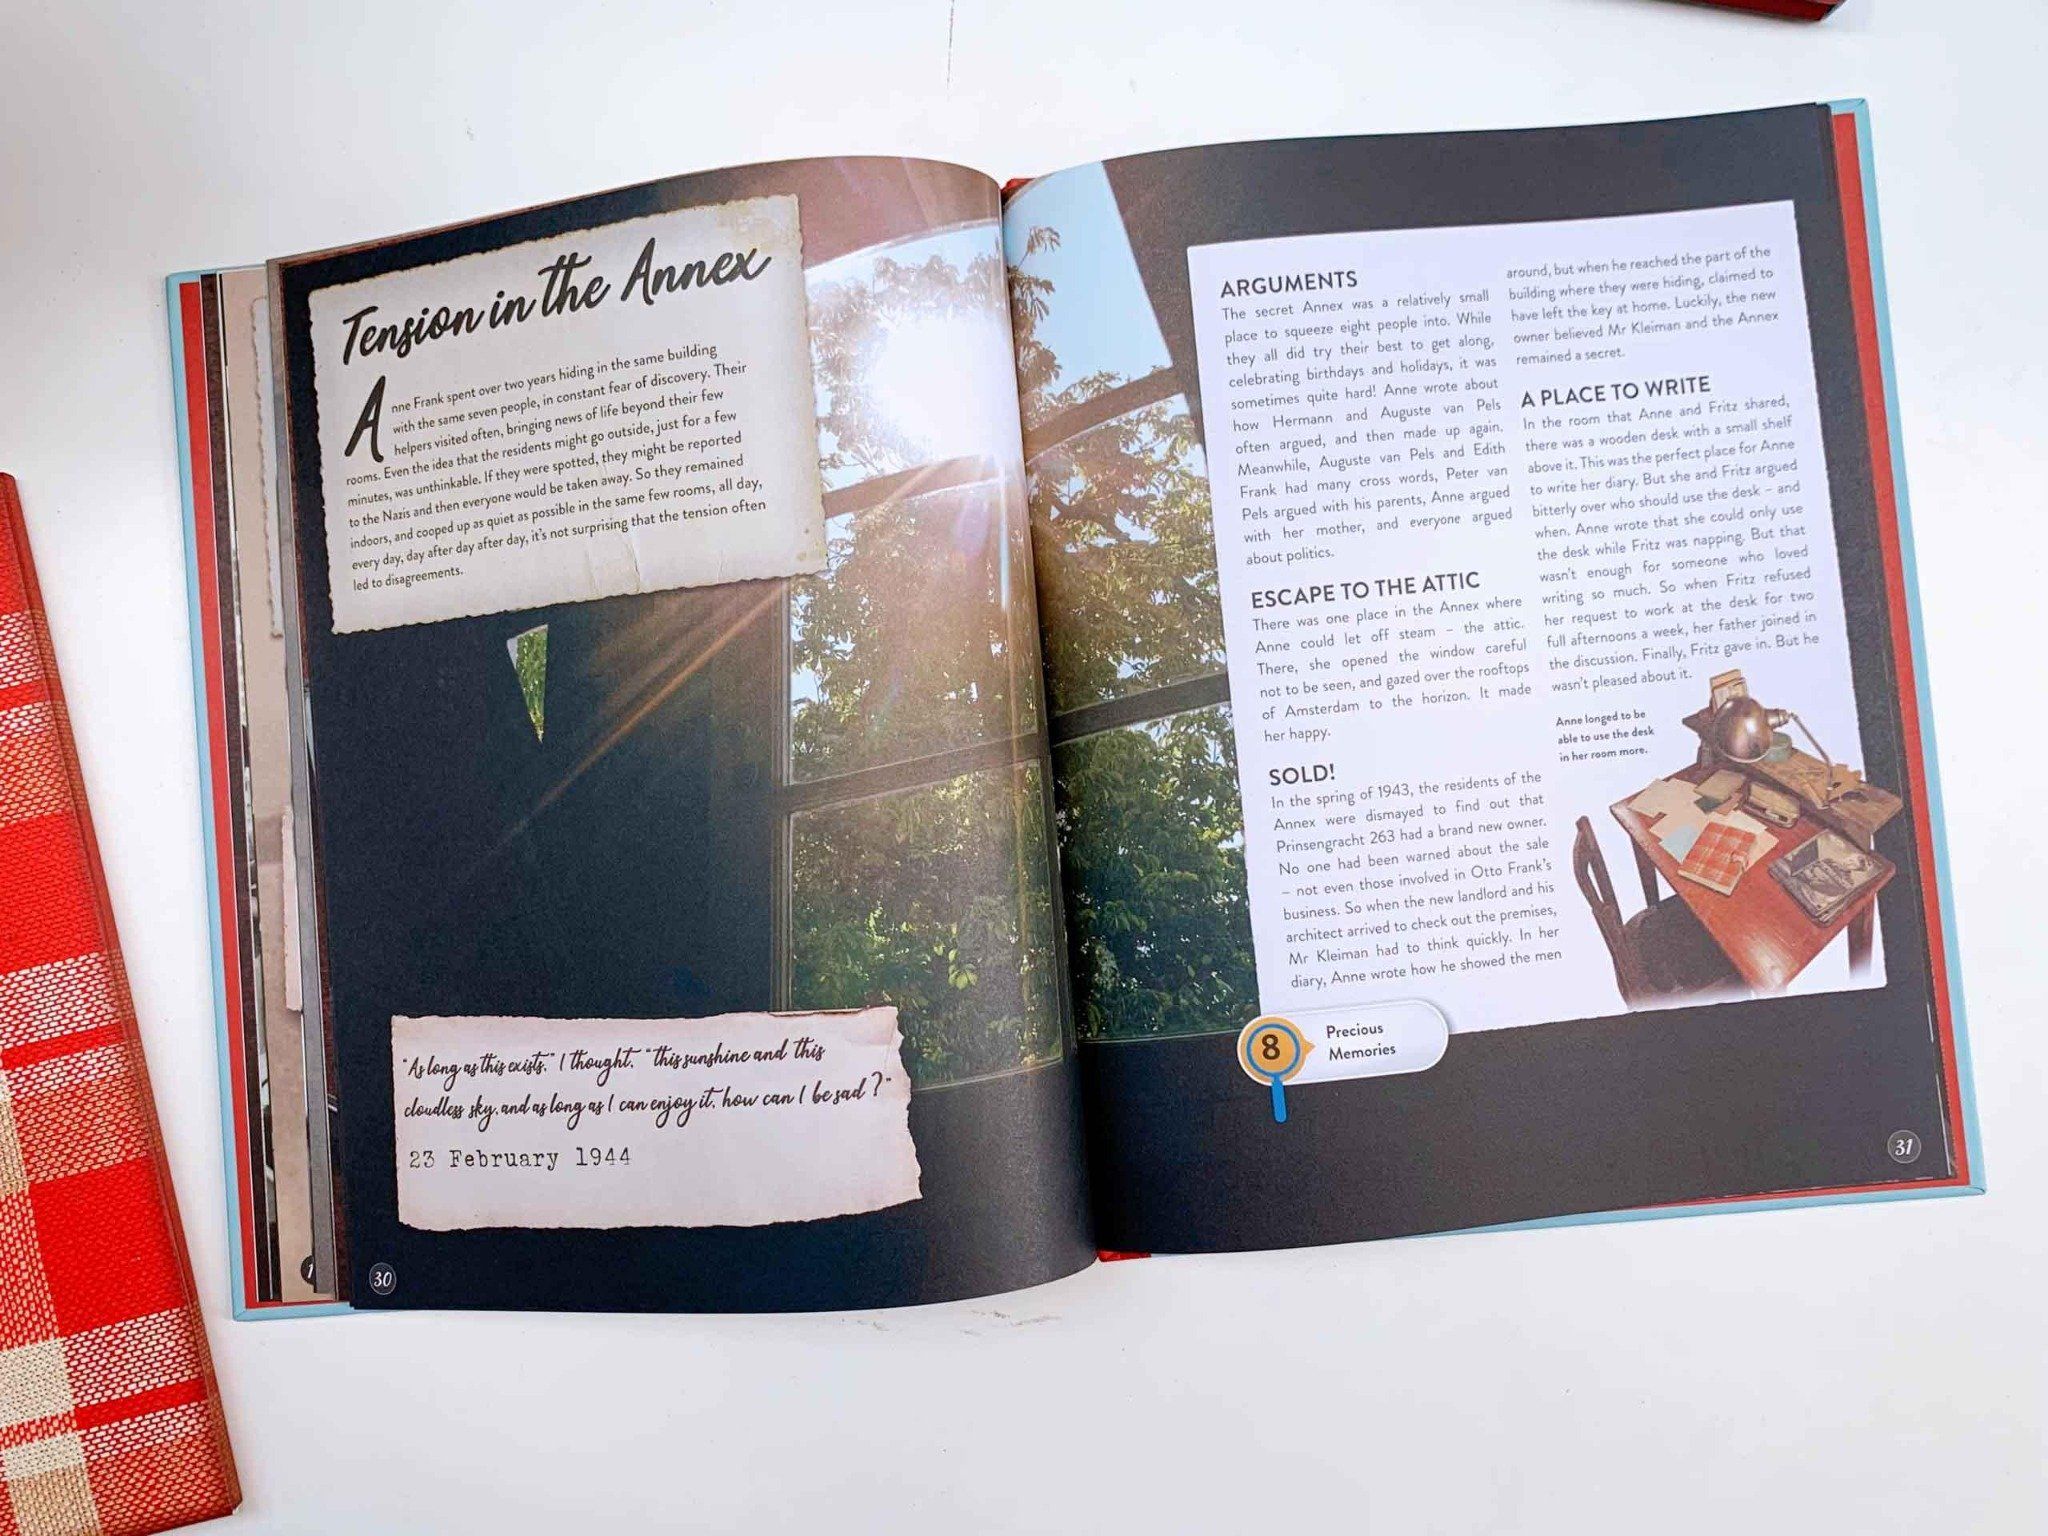 Tension in the Annex
Anne Frank spent over two years hiding in the same building
with the same seven people, in constant fear of discovery. Their
helpers visited often, bringing news of life beyond their few
rooms. Even the idea that the residents might go outside, just for a few
minutes, was unthinkable. If they were spotted, they might be reported
to the Nazis and then everyone would be taken away. So they remained
indoors, and cooped up as quiet as possible in the same few rooms, all day,
every day, day after day after day, it's not surprising that the tension often
led to disagreements.
"As long as this exists," I thought, "this sunshine and this
cloudless sky, and as long as I can enjoy it, how can I be sad?"
23 February 1944
30
ARGUMENTS
The secret Annex was a relatively small
place to squeeze eight people into. While
they all did try their best to get along,
celebrating birthdays and holidays, it was
sometimes quite hard! Anne wrote about
how Hermann and Auguste van Pels
often argued, and then made up again.
Meanwhile, Auguste van Pels and Edith
Frank had many cross words, Peter van
Pels argued with his parents, Anne argued
with her mother, and everyone argued
about politics.
ESCAPE TO THE ATTIC
There was one place in the Annex where
Anne could let off steam – the attic.
There, she opened the window careful
not to be seen, and gazed over the rooftops
of Amsterdam to the horizon. It made
her happy.
SOLD!
In the spring of 1943, the residents of the
Annex were dismayed to find out that
Prinsengracht 263 had a brand new owner.
No one had been warned about the sale
– not even those involved in Otto Frank's
business. So when the new landlord and his
architect arrived to check out the premises,
Mr Kleiman had to think quickly. In her
diary, Anne wrote how he showed the men
around, but when he reached the part of the
building where they were hiding, claimed to
have left the key at home. Luckily, the new
owner believed Mr Kleiman and the Annex
remained a secret.
A PLACE TO WRITE
In the room that Anne and Fritz shared,
there was a wooden desk with a small shelf
above it. This was the perfect place for Anne
to write her diary. But she and Fritz argued
bitterly over who should use the desk – and
when. Anne wrote that she could only use
the desk while Fritz was napping. But that
wasn't enough for someone who loved
writing so much. So when Fritz refused
her request to work at the desk for two
full afternoons a week, her father joined in
the discussion. Finally, Fritz gave in. But he
wasn't pleased about it.
Anne longed to be
able to use the desk
in her room more.
8
Precious
Memories
31